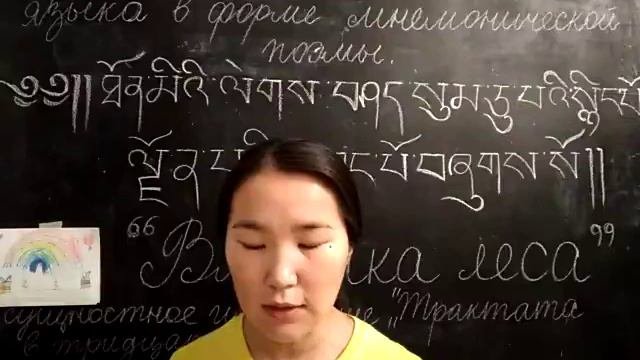 языка в форме мнемонической
поэмы.
༄༅།། ཐོན་མིའི་ལེགས་བཤད་སུམ་ཅུ་པའི་སྙིང་པོ
ལྗོན་པའི་དབང་པོ་བཞུགས་སོ།།
“ леса ”
сущностное "Трактата
в тридцат